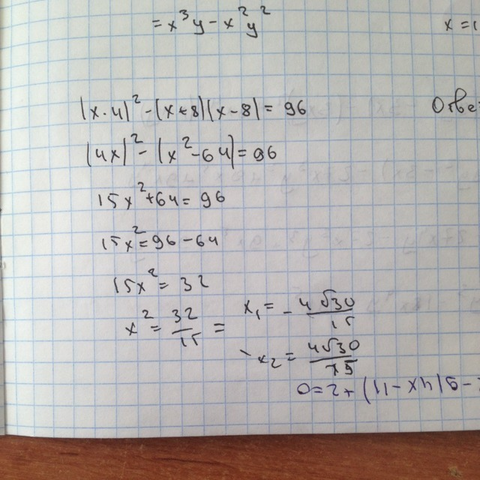 = x³y - x²y²
x = 1
(x·4)² - (x+8)(x-8) = 96
Отве
(4x)² - (x² - 64) = 96
15x² + 64 = 96
15x² = 96 - 64
15x² = 32
x² = 32/15 =
x₁ = - 4√30/15
x₂ = 4√30/15